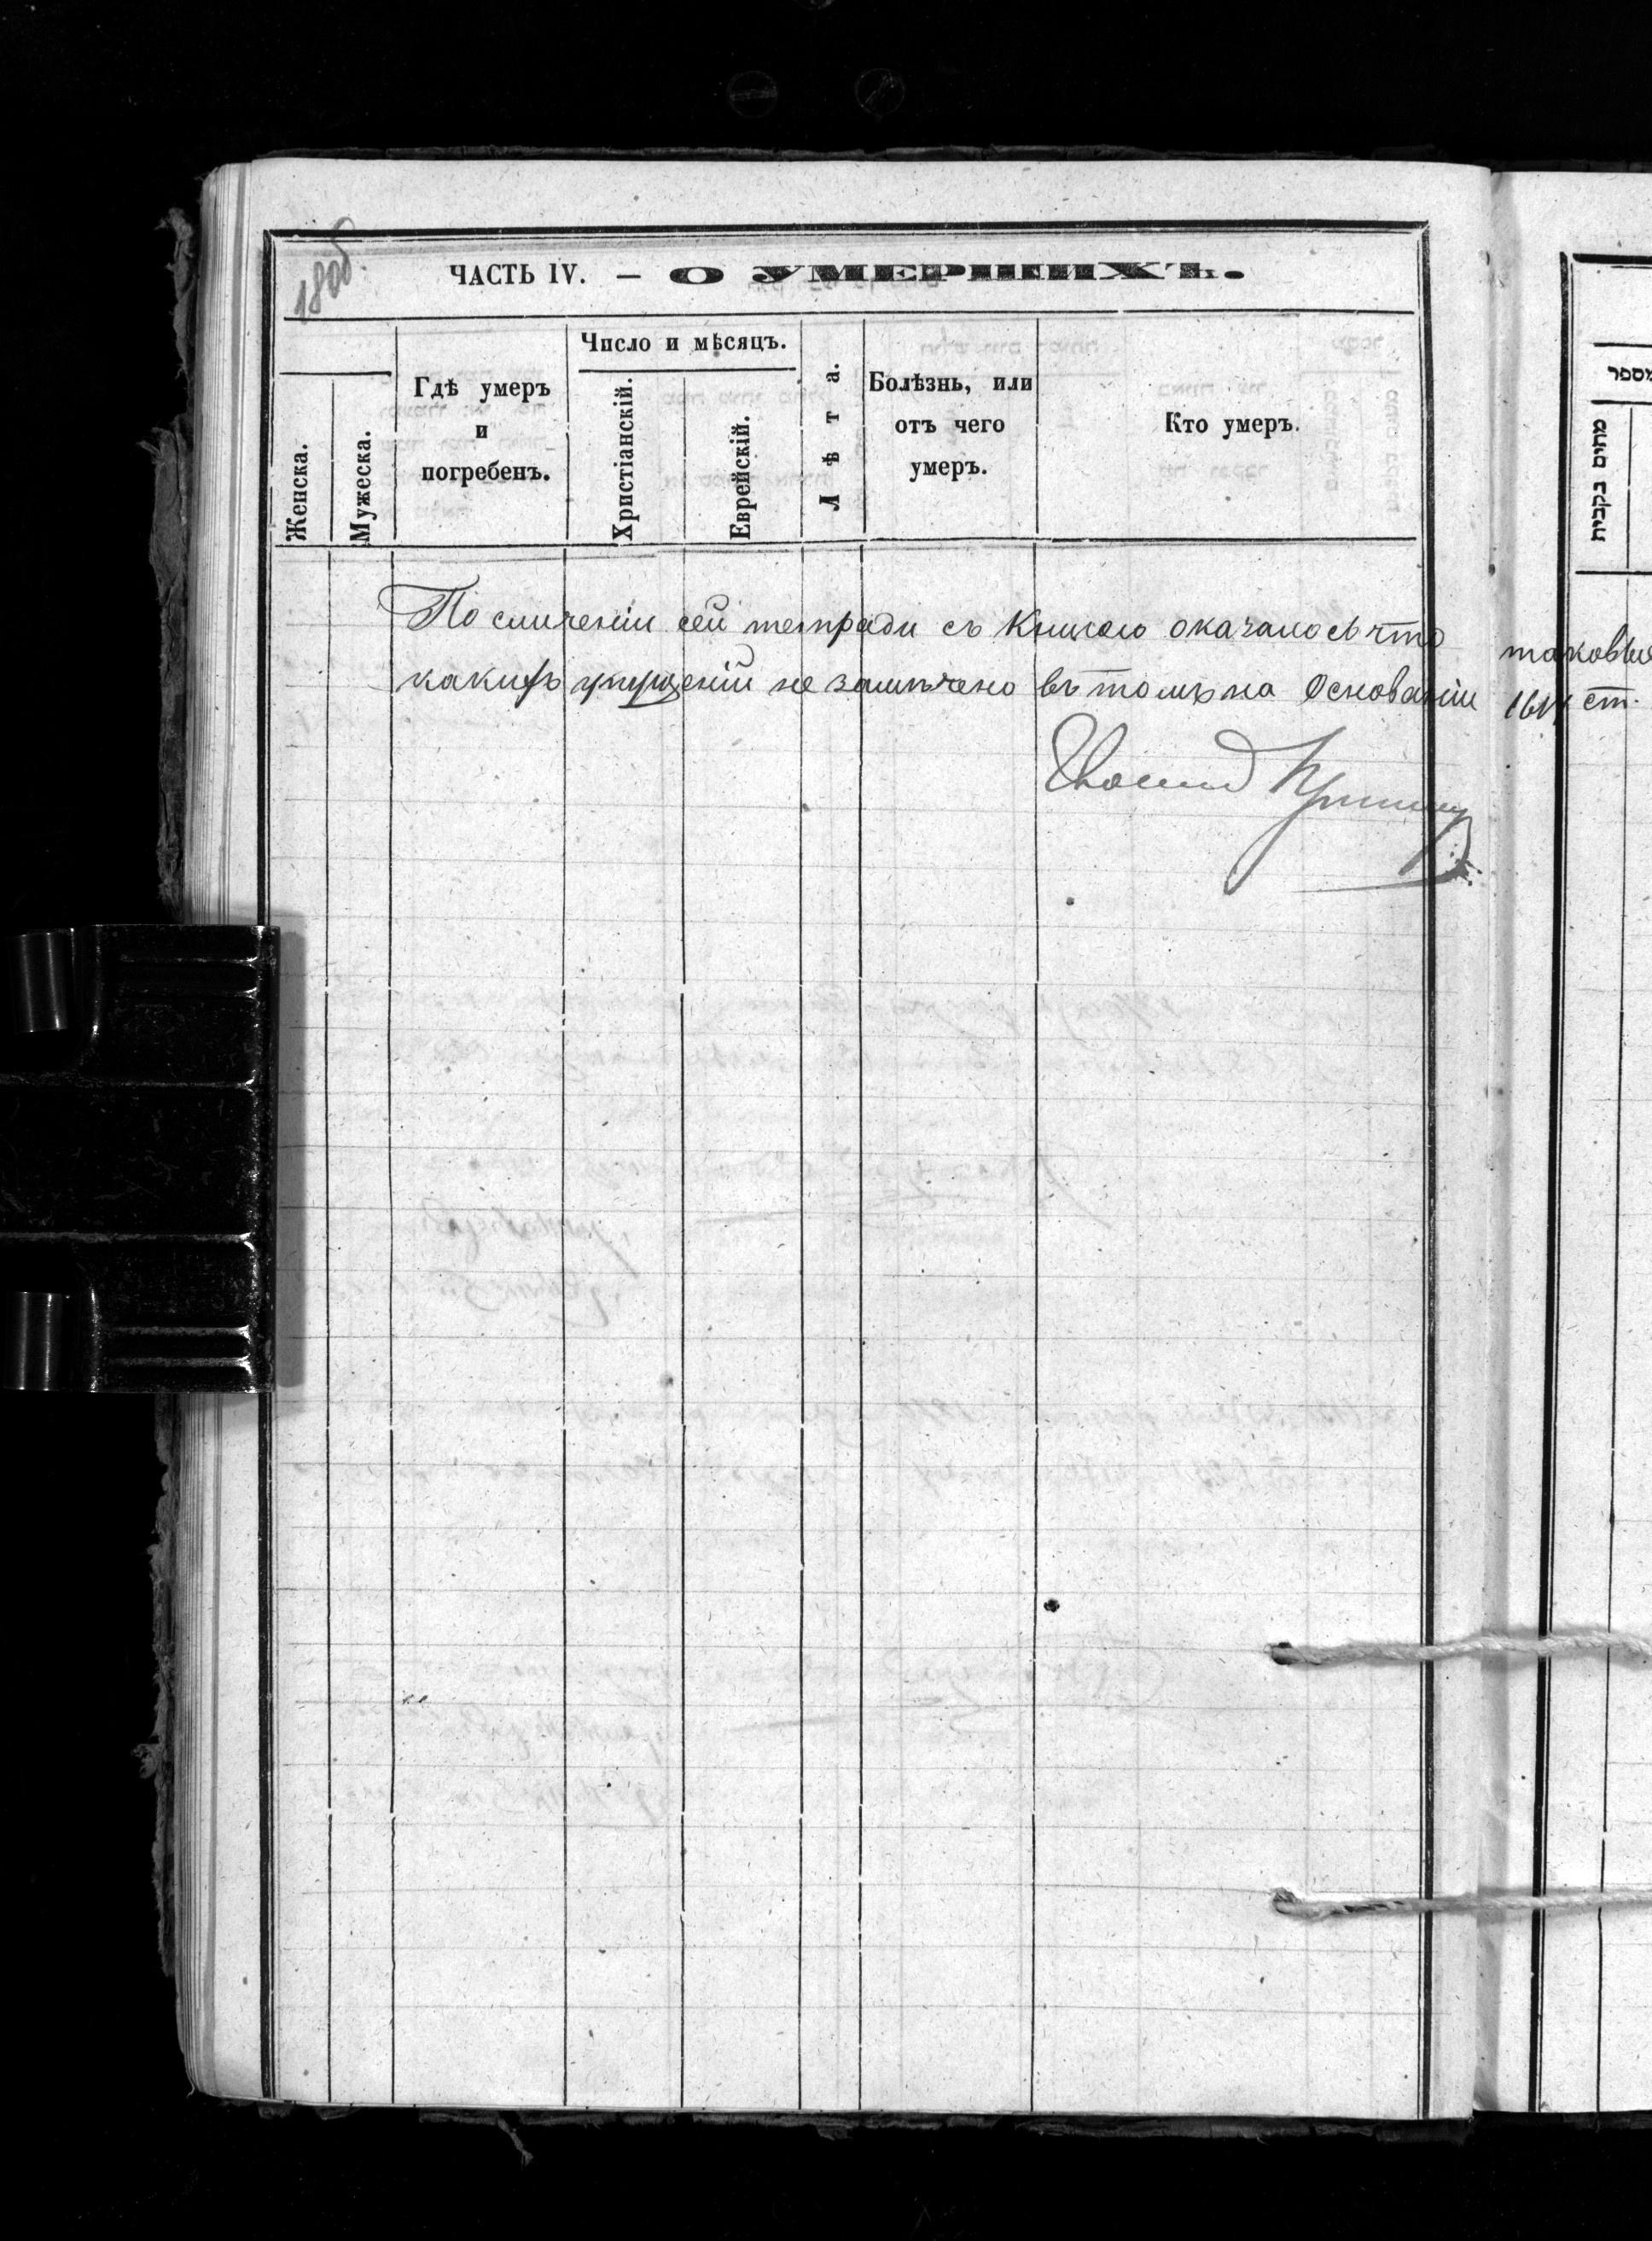 180об.
ЧАСТЬ IV. — О УМЕРШИХЪ.
Женска.
Мужеска.
Гдѣ умеръ
и
погребенъ.
Число и мѣсяцъ.
Христіанскій.
Еврейскій.
Лѣта.
Болѣзнь, или
отъ чего
умеръ.
Кто умеръ.
По сличеніи сей тетради съ Книгою оказалось что таковыя
какихъ упущеній не замѣчено въ томъ на Основаніи ст.
מספר
מתים נקבות